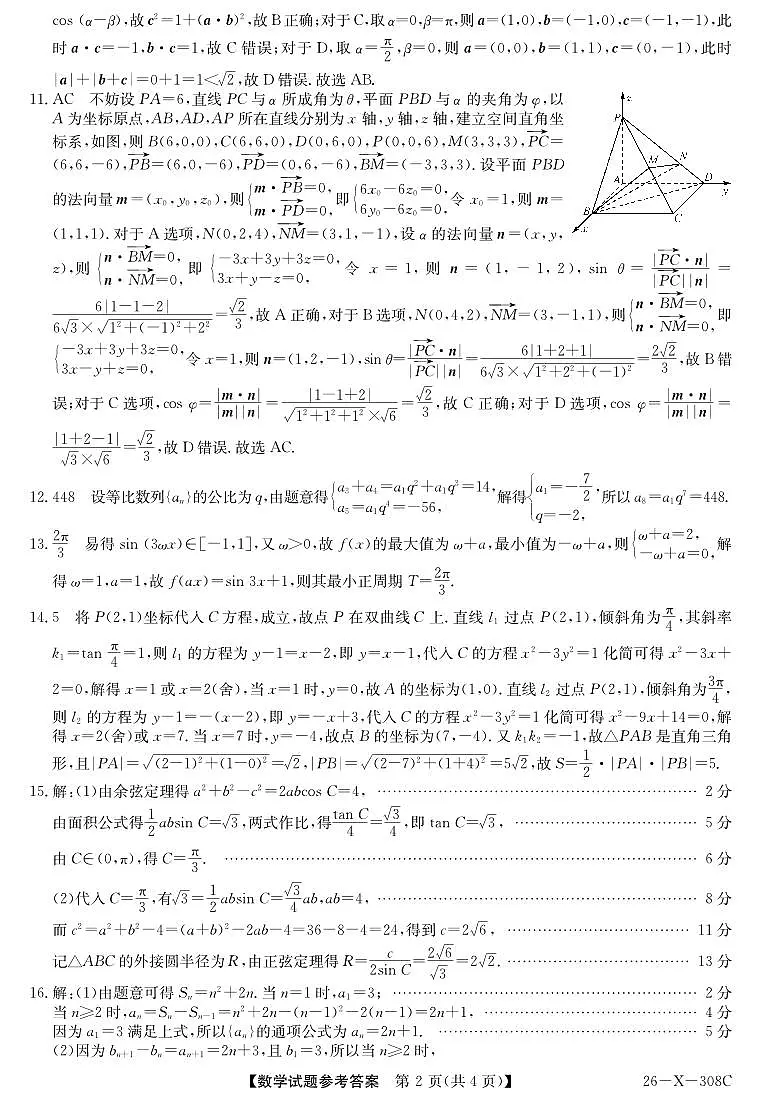 cos (α−β),故 c²=1+(a·b)²,故 B 正确;对于 C,取 α=0,β=π,则 a=(1,0),b=(−1,0),c=(−1,−1),此
时 a·c=−1,b·c=1,故 C 错误;对于 D,取 α=π/2,β=0,则 a=(0,0),b=(1,1),c=(0,−1),此时
|a|+|b+c|=0+1=1<√2,故 D 错误.故选 AB.
11. AC 不妨设 PA=6,直线 PC 与 α 所成角为 θ,平面 PBD 与 α 的夹角为 φ,以
A 为坐标原点,AB,AD,AP 所在直线分别为 x 轴,y 轴,z 轴,建立空间直角坐
标系,如图,则 B(6,0,0),C(6,6,0),D(0,6,0),P(0,0,6),M(3,3,3),PC→=
(6,6,−6),PB→=(6,0,−6),PD→=(0,6,−6),BM→=(−3,3,3).设平面 PBD
的法向量 m=(x₀,y₀,z₀),则{m·PB→=0, m·PD→=0, 即{6x₀−6z₀=0, 6y₀−6z₀=0, 令 x₀=1,则 m=
(1,1,1).对于 A 选项,N(0,2,4),NM→=(3,1,−1),设 α 的法向量 n=(x,y,
z),则{n·BM→=0, n·NM→=0, 即{−3x+3y+3z=0, 3x+y−z=0, 令 x=1,则 n=(1,−1,2),sin θ=|PC→·n|/|PC→||n|=
6|1−1−2|/(6√3×√(1²+(−1)²+2²))=√2/3,故 A 正确,对于 B 选项,N(0,4,2),NM→=(3,−1,1),则{n·BM→=0, n·NM→=0, 即
{−3x+3y+3z=0, 3x−y+z=0, 令 x=1,则 n=(1,2,−1),sin θ=|PC→·n|/|PC→||n|=6|1+2+1|/(6√3×√(1²+2²+(−1)²))=2√2/3,故 B 错
误;对于 C 选项,cos φ=|m·n|/|m||n|=|1−1+2|/(√(1²+1²+1²)×√6)=√2/3,故 C 正确;对于 D 选项,cos φ=|m·n|/|m||n|=
|1+2−1|/(√3×√6)=√2/3,故 D 错误.故选 AC.
z
P
M
N
A
D
y
B
C
x
12. 448 设等比数列{aₙ}的公比为 q,由题意得{a₃+a₄=a₁q²+a₁q³=14, a₅=a₁q⁴=−56, 解得{a₁=−7/2, q=−2, 所以 a₈=a₁q⁷=448.
13. 2π/3 易得 sin (3ωx)∈[−1,1],又 ω>0,故 f(x)的最大值为 ω+a,最小值为−ω+a,则{ω+a=2, −ω+a=0, 解
得 ω=1,a=1,故 f(ax)=sin 3x+1,则其最小正周期 T=2π/3.
14. 5 将 P(2,1)坐标代入 C 方程,成立,故点 P 在双曲线 C 上.直线 l₁ 过点 P(2,1),倾斜角为π/4,其斜率
k₁=tan π/4=1,则 l₁ 的方程为 y−1=x−2,即 y=x−1,代入 C 的方程 x²−3y²=1 化简可得 x²−3x+
2=0,解得 x=1 或 x=2(舍),当 x=1 时,y=0,故 A 的坐标为(1,0).直线 l₂ 过点 P(2,1),倾斜角为3π/4,
则 l₂ 的方程为 y−1=−(x−2),即 y=−x+3,代入 C 的方程 x²−3y²=1 化简可得 x²−9x+14=0,解
得 x=2(舍)或 x=7.当 x=7 时,y=−4,故点 B 的坐标为(7,−4).又 k₁k₂=−1,故△PAB 是直角三角
形,且|PA|=√((2−1)²+(1−0)²)=√2,|PB|=√((2−7)²+(1+4)²)=5√2,故 S=1/2·|PA|·|PB|=5.
15. 解:(1)由余弦定理得 a²+b²−c²=2abcos C=4, …… 2 分
由面积公式得1/2absin C=√3,两式作比,得tan C/4=√3/4,即 tan C=√3, …… 5 分
由 C∈(0,π),得 C=π/3. …… 6 分
(2)代入 C=π/3,有√3=1/2absin C=√3/4ab,ab=4, …… 8 分
而 c²=a²+b²−4=(a+b)²−2ab−4=36−8−4=24,得到 c=2√6, …… 11 分
记△ABC 的外接圆半径为 R,由正弦定理得 R=c/(2sin C)=2√6/√3=2√2. …… 13 分
16. 解:(1)由题意可得 Sₙ=n²+2n.当 n=1 时,a₁=3; …… 2 分
当 n≥2 时,aₙ=Sₙ−Sₙ₋₁=n²+2n−(n−1)²−2(n−1)=2n+1, …… 4 分
因为 a₁=3 满足上式,所以{aₙ}的通项公式为 aₙ=2n+1. …… 5 分
(2)因为 bₙ₊₁−bₙ=aₙ₊₁=2n+3,且 b₁=3,所以当 n≥2 时,
【数学试题参考答案 第 2 页(共 4 页)】 26−X−308C